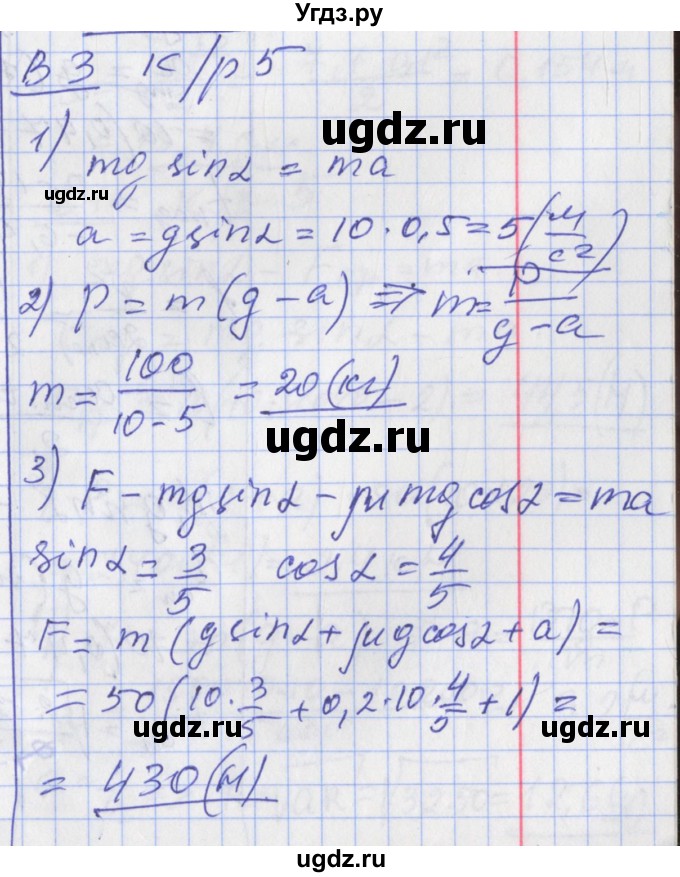 Угдз.ру
В 3 К/р 5
ugdz.ru
1) mg sinα = ma
ugdz.ru
a = g sinα = 10 · 0,5 = 5 (м/с²)
2) P = m(g - a) ⇒ m = P/(g - a)
m = 100/(10 - 5) = 20 (кг)
ugdz.ru
ugdz.ru
3) F - mg sinα - μmg cosα = ma
sinα = 3/5 cosα = 4/5
ugdz.ru
F = m (g sinα + μg cosα + a) =
ugdz.ru
= 50 (10 · 3/5 + 0,2 · 10 · 4/5 + 1) =
ugdz.ru
= 430 (Н)
ugdz.ru
ugdz.ru